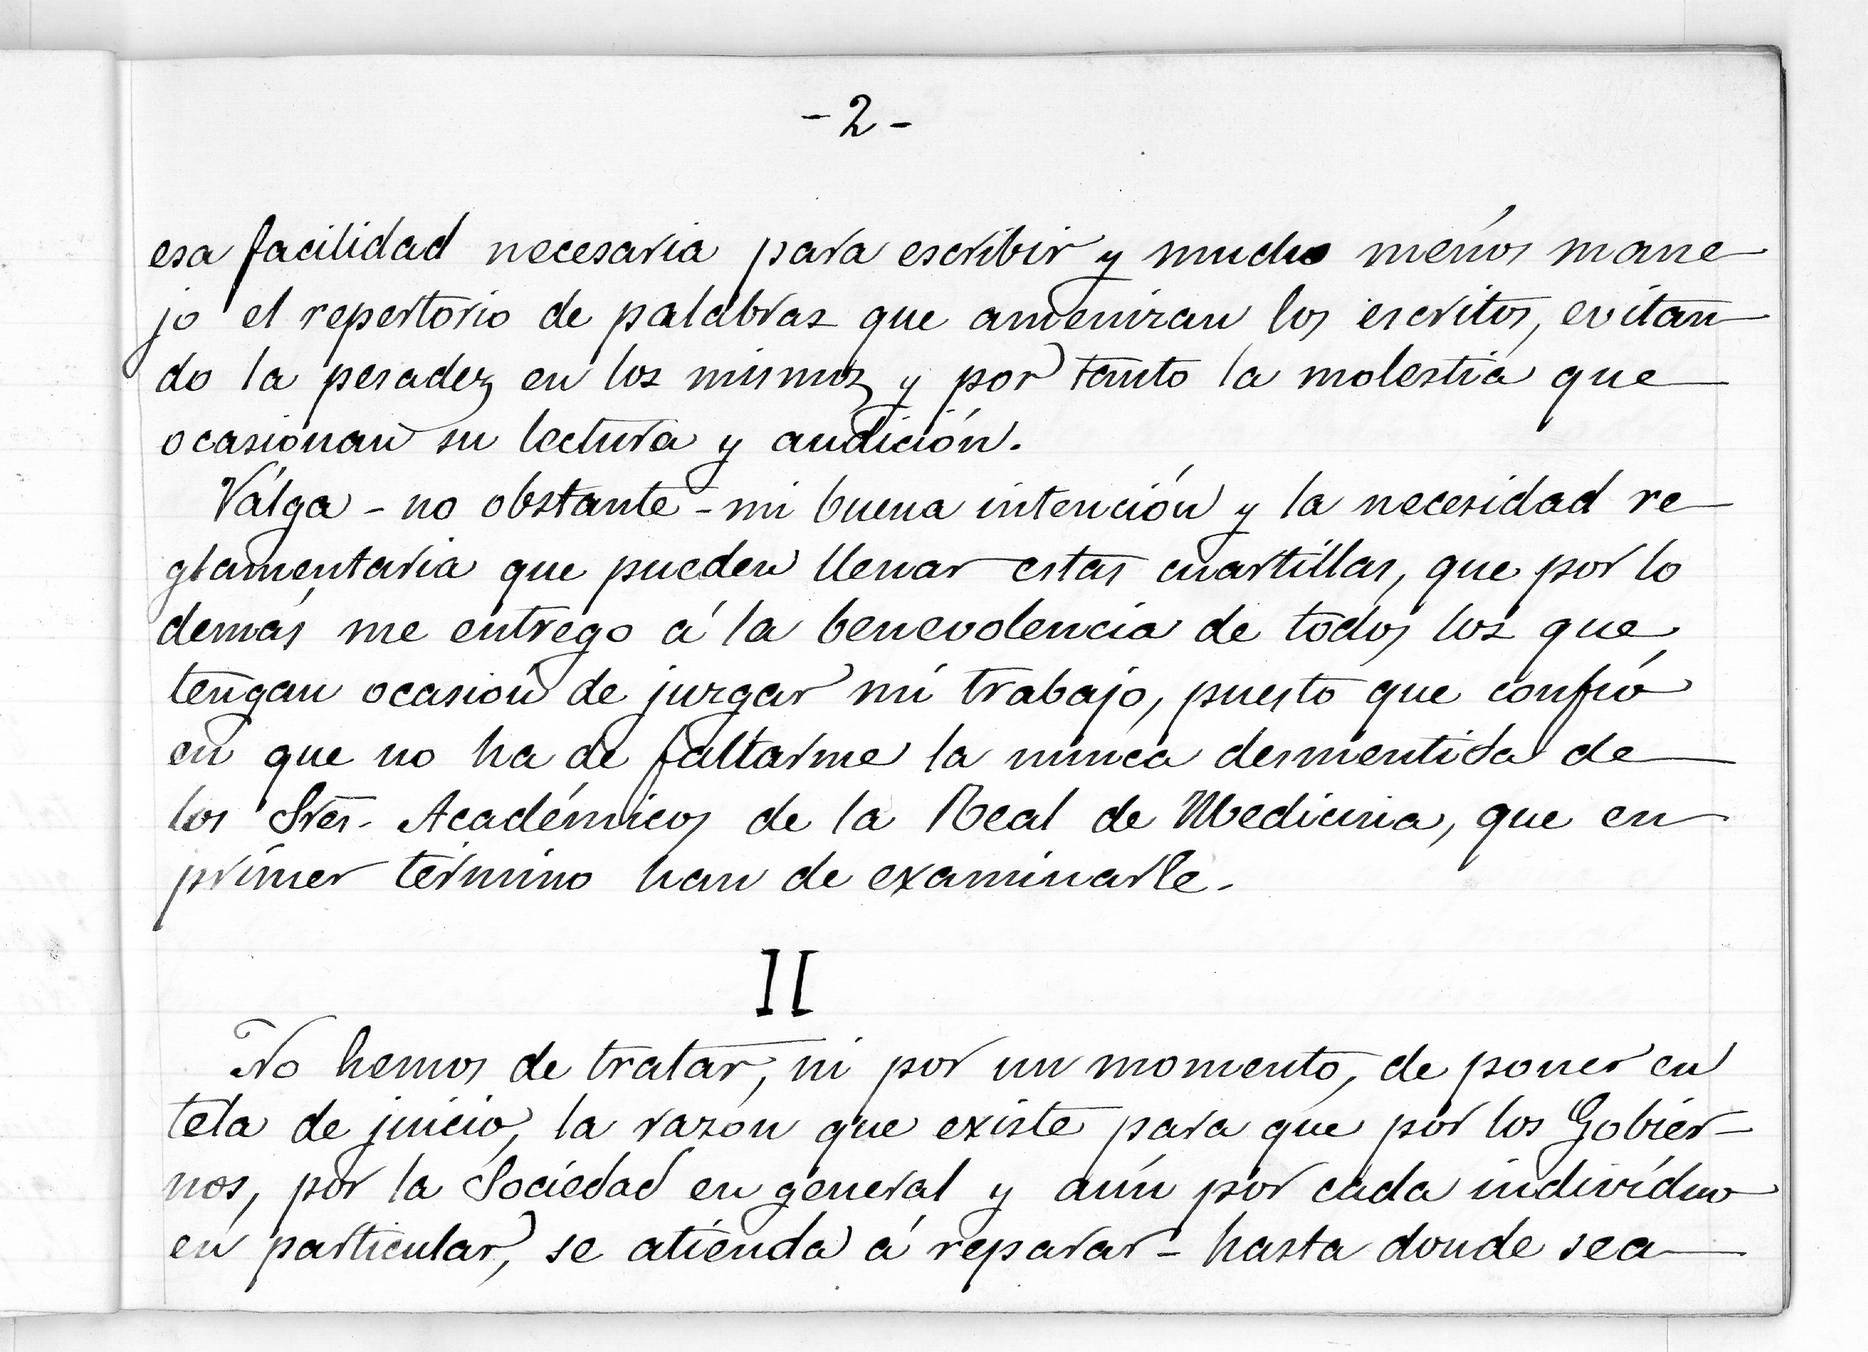 - 2 -
esa facilidad necesaria para escribir y mucho menos mane
jo el repertorio de palabras que amenizan los escritos, evitan
do la pesadez en los mismos y por tanto la molestia que
ocasionan su lectura y audición.
Válga - no obstante - mi buena intención y la necesidad re
glamentaria que pueden llenar estas cuartillas, que por lo
demás me entrego á la benevolencia de todos los que
tengan ocasion de juzgar mi trabajo, puesto que confio
en que no ha de faltarme la nunca desmentida de
los Sres. Académicos de la Real de Medicina, que en
primer término han de examinarle.
II
No hemos de tratar, ni por un momento, de poner en
tela de juicio, la razón que existe para que por los Gobier-
nos, por la Sociedad en general y aún por cada indivíduo
en particular, se atienda á reparar - hasta donde sea